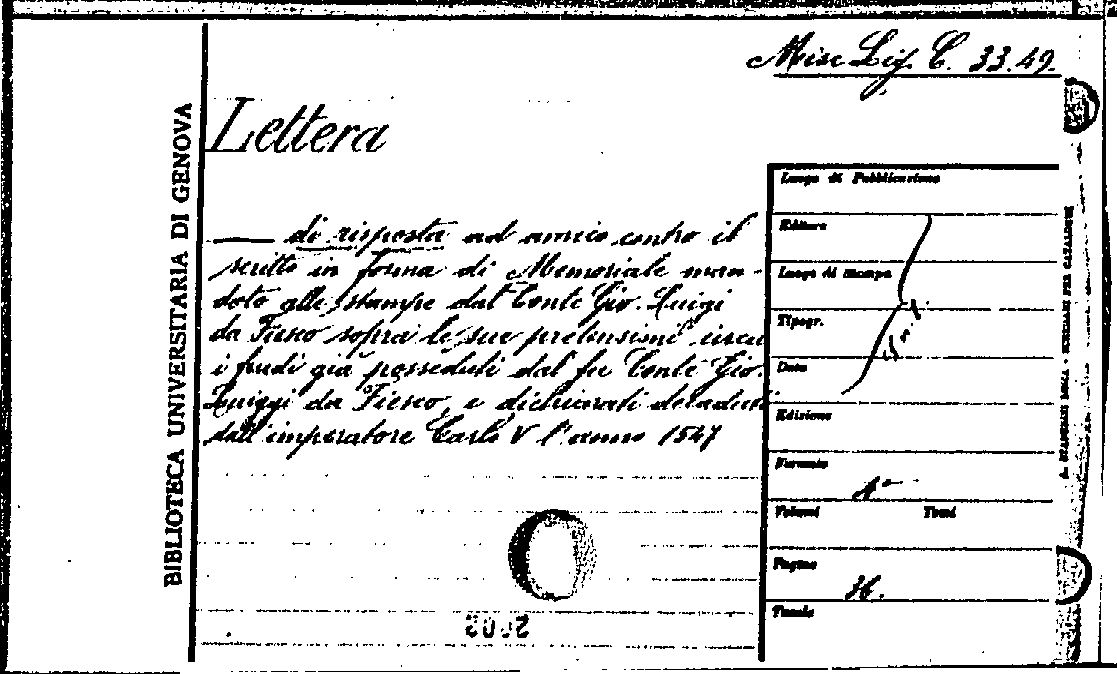 Misc Lig. C. 33.49.
BIBLIOTECA UNIVERSITARIA DI GENOVA
Lettera
—— di risposta ad amico contro il
scritto in forma di Memoriale man-
dato alle stampe dal Conte Gio. Luigi
da Fiesco sopra le sue pretensioni circa
i feudi già posseduti dal fu Conte Gio.
Luiggi da Fiesco, e dichiarati decaduti
dall'imperatore Carlo V l'anno 1547
Luogo di Pubblicazione
Editore
Luogo di stampa
Tipogr.
Data
Edizione
Formato 4°
Volumi Tomi
Pagine 36.
Tavole